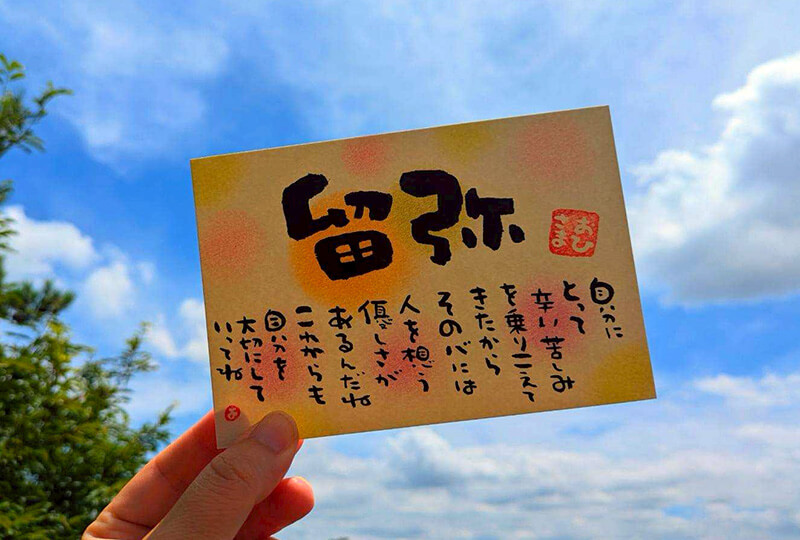 留弥
おひさま
自分に
とって
辛い苦しみ
を乗りこえて
きたから
その心には
人を想う
優しさが
あるんだね
これからも
自分を
大切にして
いってね